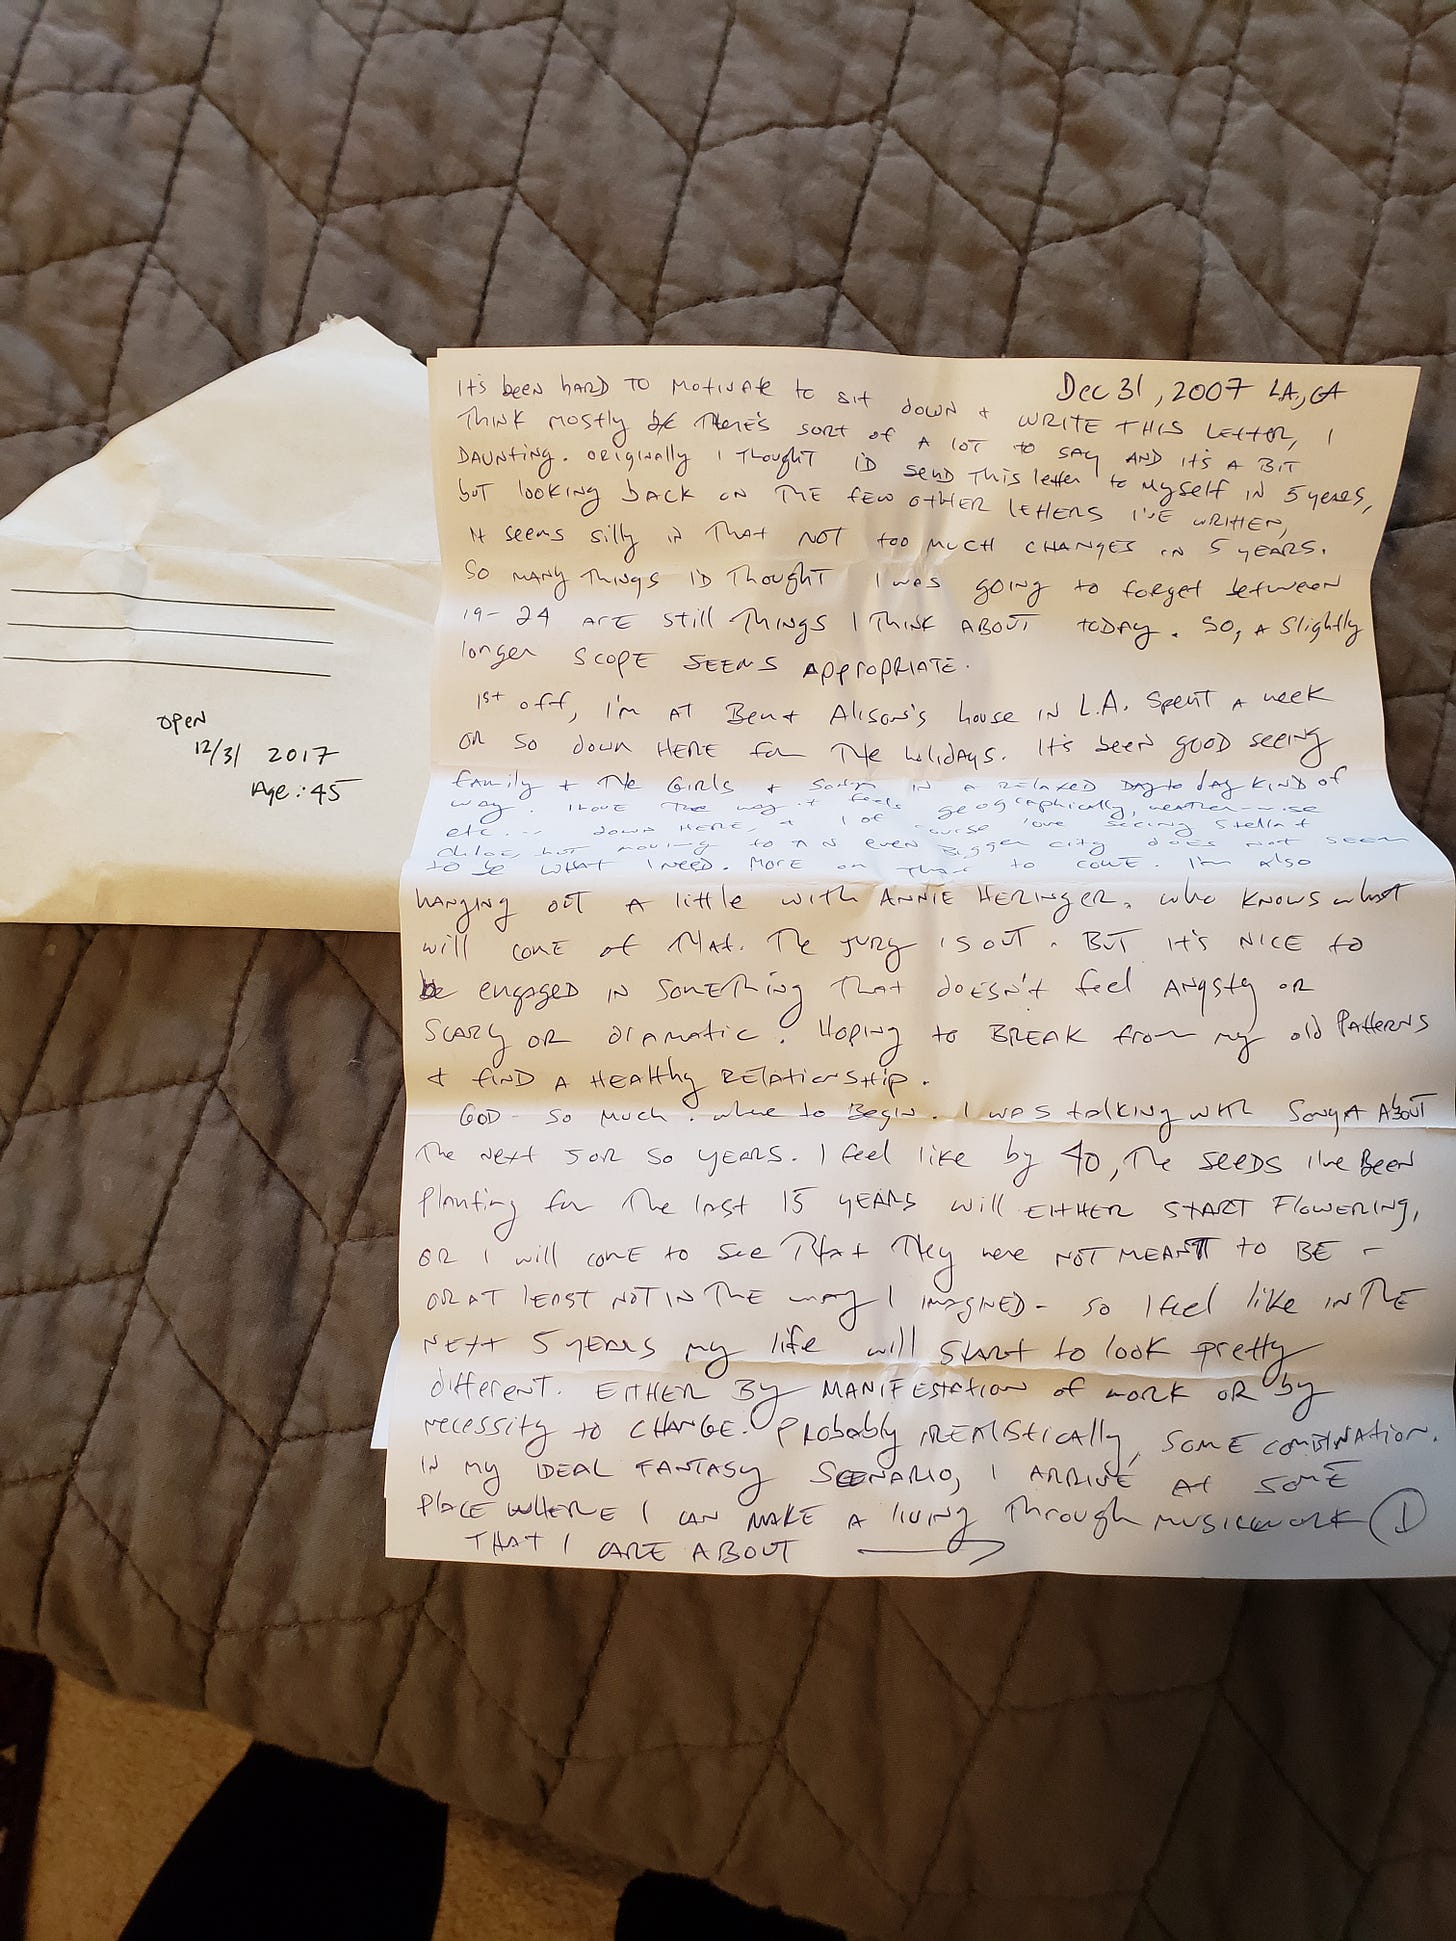 Dec 31, 2007 LA, CA
It's been hard to motivate to sit down + write this letter, I
think mostly bc there's sort of a lot to say and it's a bit
daunting. Originally I thought I'd send this letter to myself in 5 years,
but looking back on the few other letters I've written,
it seems silly in that not too much changes in 5 years.
So many things I'd thought I was going to forget between
19-24 are still things I think about today. So, a slightly
longer scope seems appropriate.
1st off, I'm at Ben + Alison's house in L.A. Spent a week
or so down here for the holidays. It's been good seeing
family + the girls + Sonya in a relaxed day to day kind of
way. I love the way it feels geographically, weather-wise
etc... down here, + of course love seeing Stella +
Chloe, but moving to an even bigger city does not seem
to be what I need. More on that to come. I'm also
hanging out a little with Annie Heringer. Who knows what
will come of that. The jury is out. But it's nice to
be engaged in something that doesn't feel angsty or
scary or dramatic. Hoping to break from my old patterns
+ find a healthy relationship.
God - so much. Where to begin. I was talking with Sonya about
the next 5 or so years. I feel like by 40, the seeds I've been
planting for the last 15 years will either start flowering,
or I will come to see that they were not meant to be -
or at least not in the way I imagined - so I feel like in the
next 5 years my life will start to look pretty
different. Either by manifestation of work or by
necessity to change. Probably, realistically, some combination.
In my ideal fantasy scenario, I arrive at some
place where I can make a living through musicwork
that I care about →
1
Open
12/31 2017
Age: 45